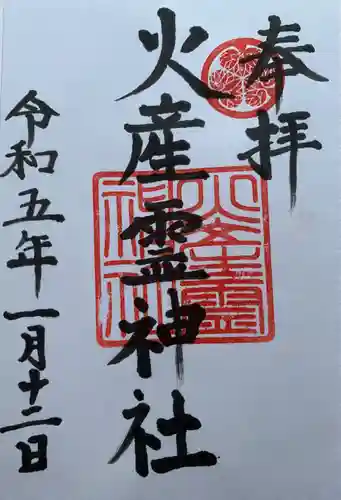 奉拝
火産霊神社
令和五年一月十二日
火産霊神社